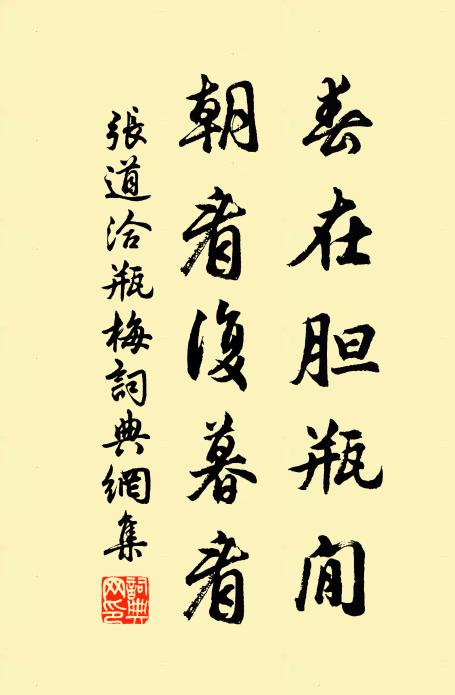 春在胆瓶间
朝看復暮看
張道洽瓶梅詞典網集
詞典
网印